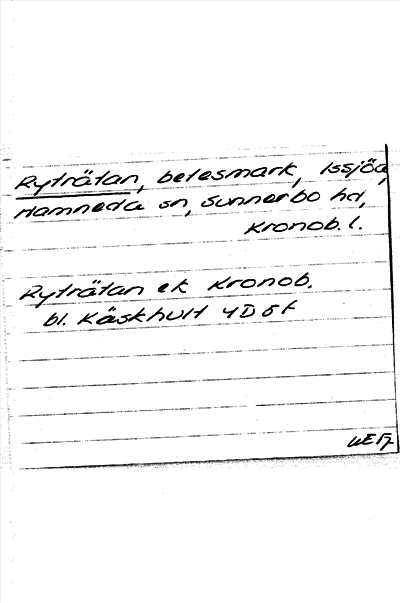 Ryträtan, betesmark, Issjöa,
Hamneda sn, Sunnerbo hd,
Kronob. l.
Ryträtan ek Kronob.
bl. Käskhult 4D 5f